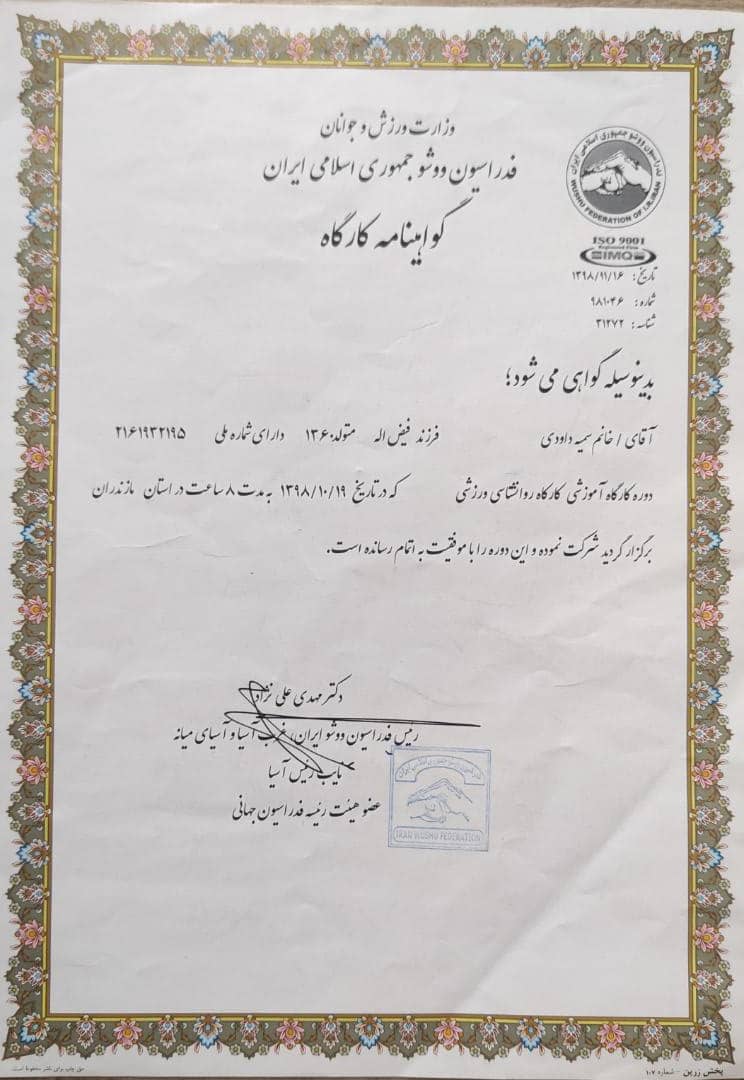 وزارت ورزش و جوانان
فدراسیون ووشو جمهوری اسلامی ایران
گواهینامه کارگاه
فدراسیون ووشو جمهوری اسلامی ایران
WUSHU FEDERATION OF I.R.IRAN
ISO 9001
Registered Firm
SIMQ
تاریخ: ۱۳۹۸/۱۱/۱۶
شماره: ۹۸۱۰۴۶
شناسه: ۳۱۲۷۲
بدینوسیله گواهی می شود؛
آقای / خانم سمیه داودی فرزند فیض اله متولد ۱۳۶۰ دارای شماره ملی ۲۱۶۱۹۳۲۱۹۵
دوره کارگاه آموزشی کارکاه روانشناسی ورزشی که در تاریخ ۱۳۹۸/۱۰/۱۹ به مدت ۸ ساعت در استان مازندران
برگزار گردید شرکت نموده و این دوره را با موفقیت به اتمام رسانده است.
دکتر مهدی علی نژاد
رئیس فدراسیون ووشو ایران، غرب آسیا و آسیای میانه
نایب رئیس آسیا
عضو هیئت رئیسه فدراسیون جهانی
فدراسیون ووشو جمهوری اسلامی ایران
IRAN WUSHU FEDERATION
پخش زرین - شماره ۱۰۷
حق چاپ برای ناشر محفوظ است.